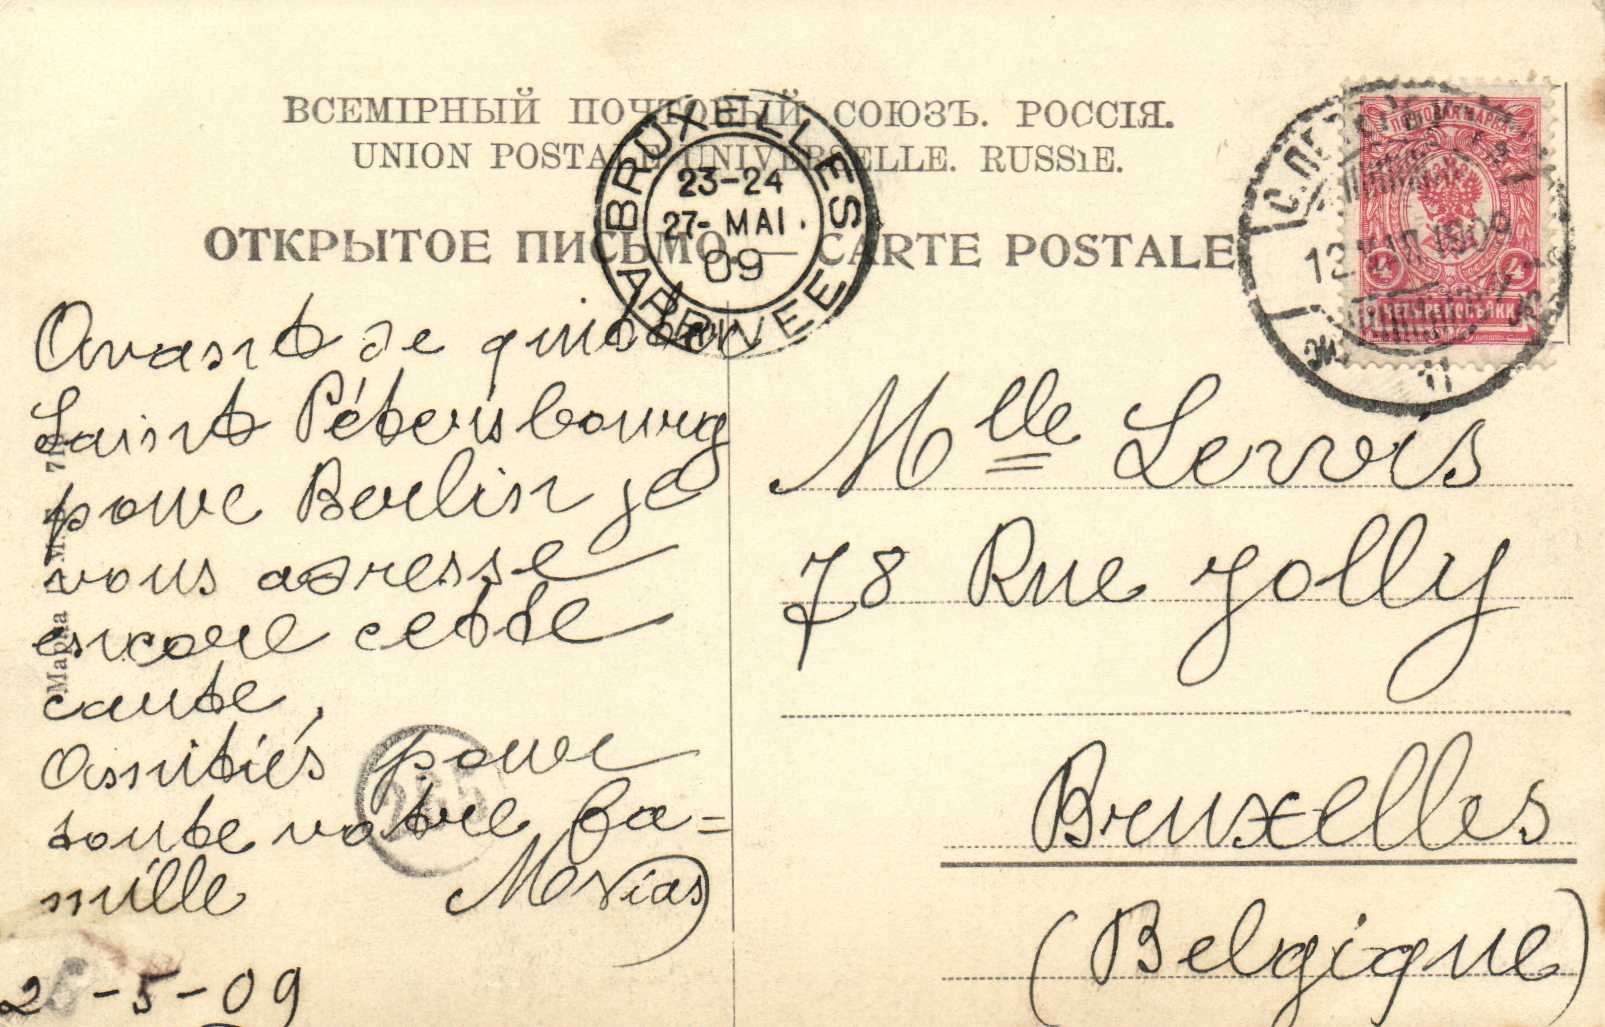 ВСЕМІРНЫЙ ПОЧТОВЫЙ СОЮЗЪ. РОССІЯ.
UNION POSTALE UNIVERSELLE. RUSSIE.
ОТКРЫТОЕ ПИСЬМО. — CARTE POSTALE
BRUXELLES
23-24
27- MAI.
09
ARRIVEE
ПОЧТОВАЯ МАРКА
4 4
ЧЕТЫРЕ КОПѢЙКИ
Avant de quitter
Saint Pétersbourg
pour Berlin je
vous adresse
encore cette
carte,
Amitiés pour
toute votre fa=
mille
-5-09
Mlle
78 Rue Jolly
Bruxelles
(Belgique)
Марка
245